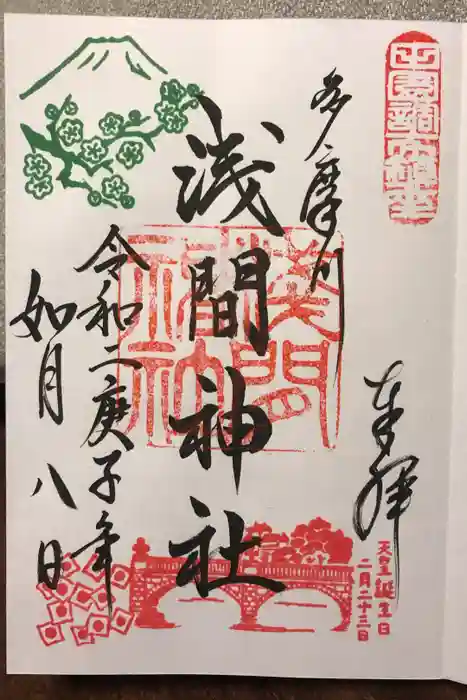 奉拝
天皇誕生日
二月二十三日
多摩川
浅間神社
浅間神社
令和二庚子年
如月八日